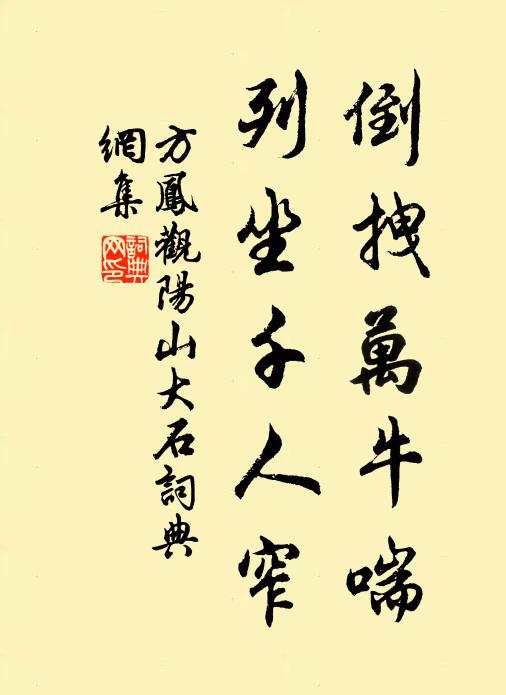 倒拽萬牛喘
列坐千人窄
方鳳觀陽山大石詞典
網集
詞典網印